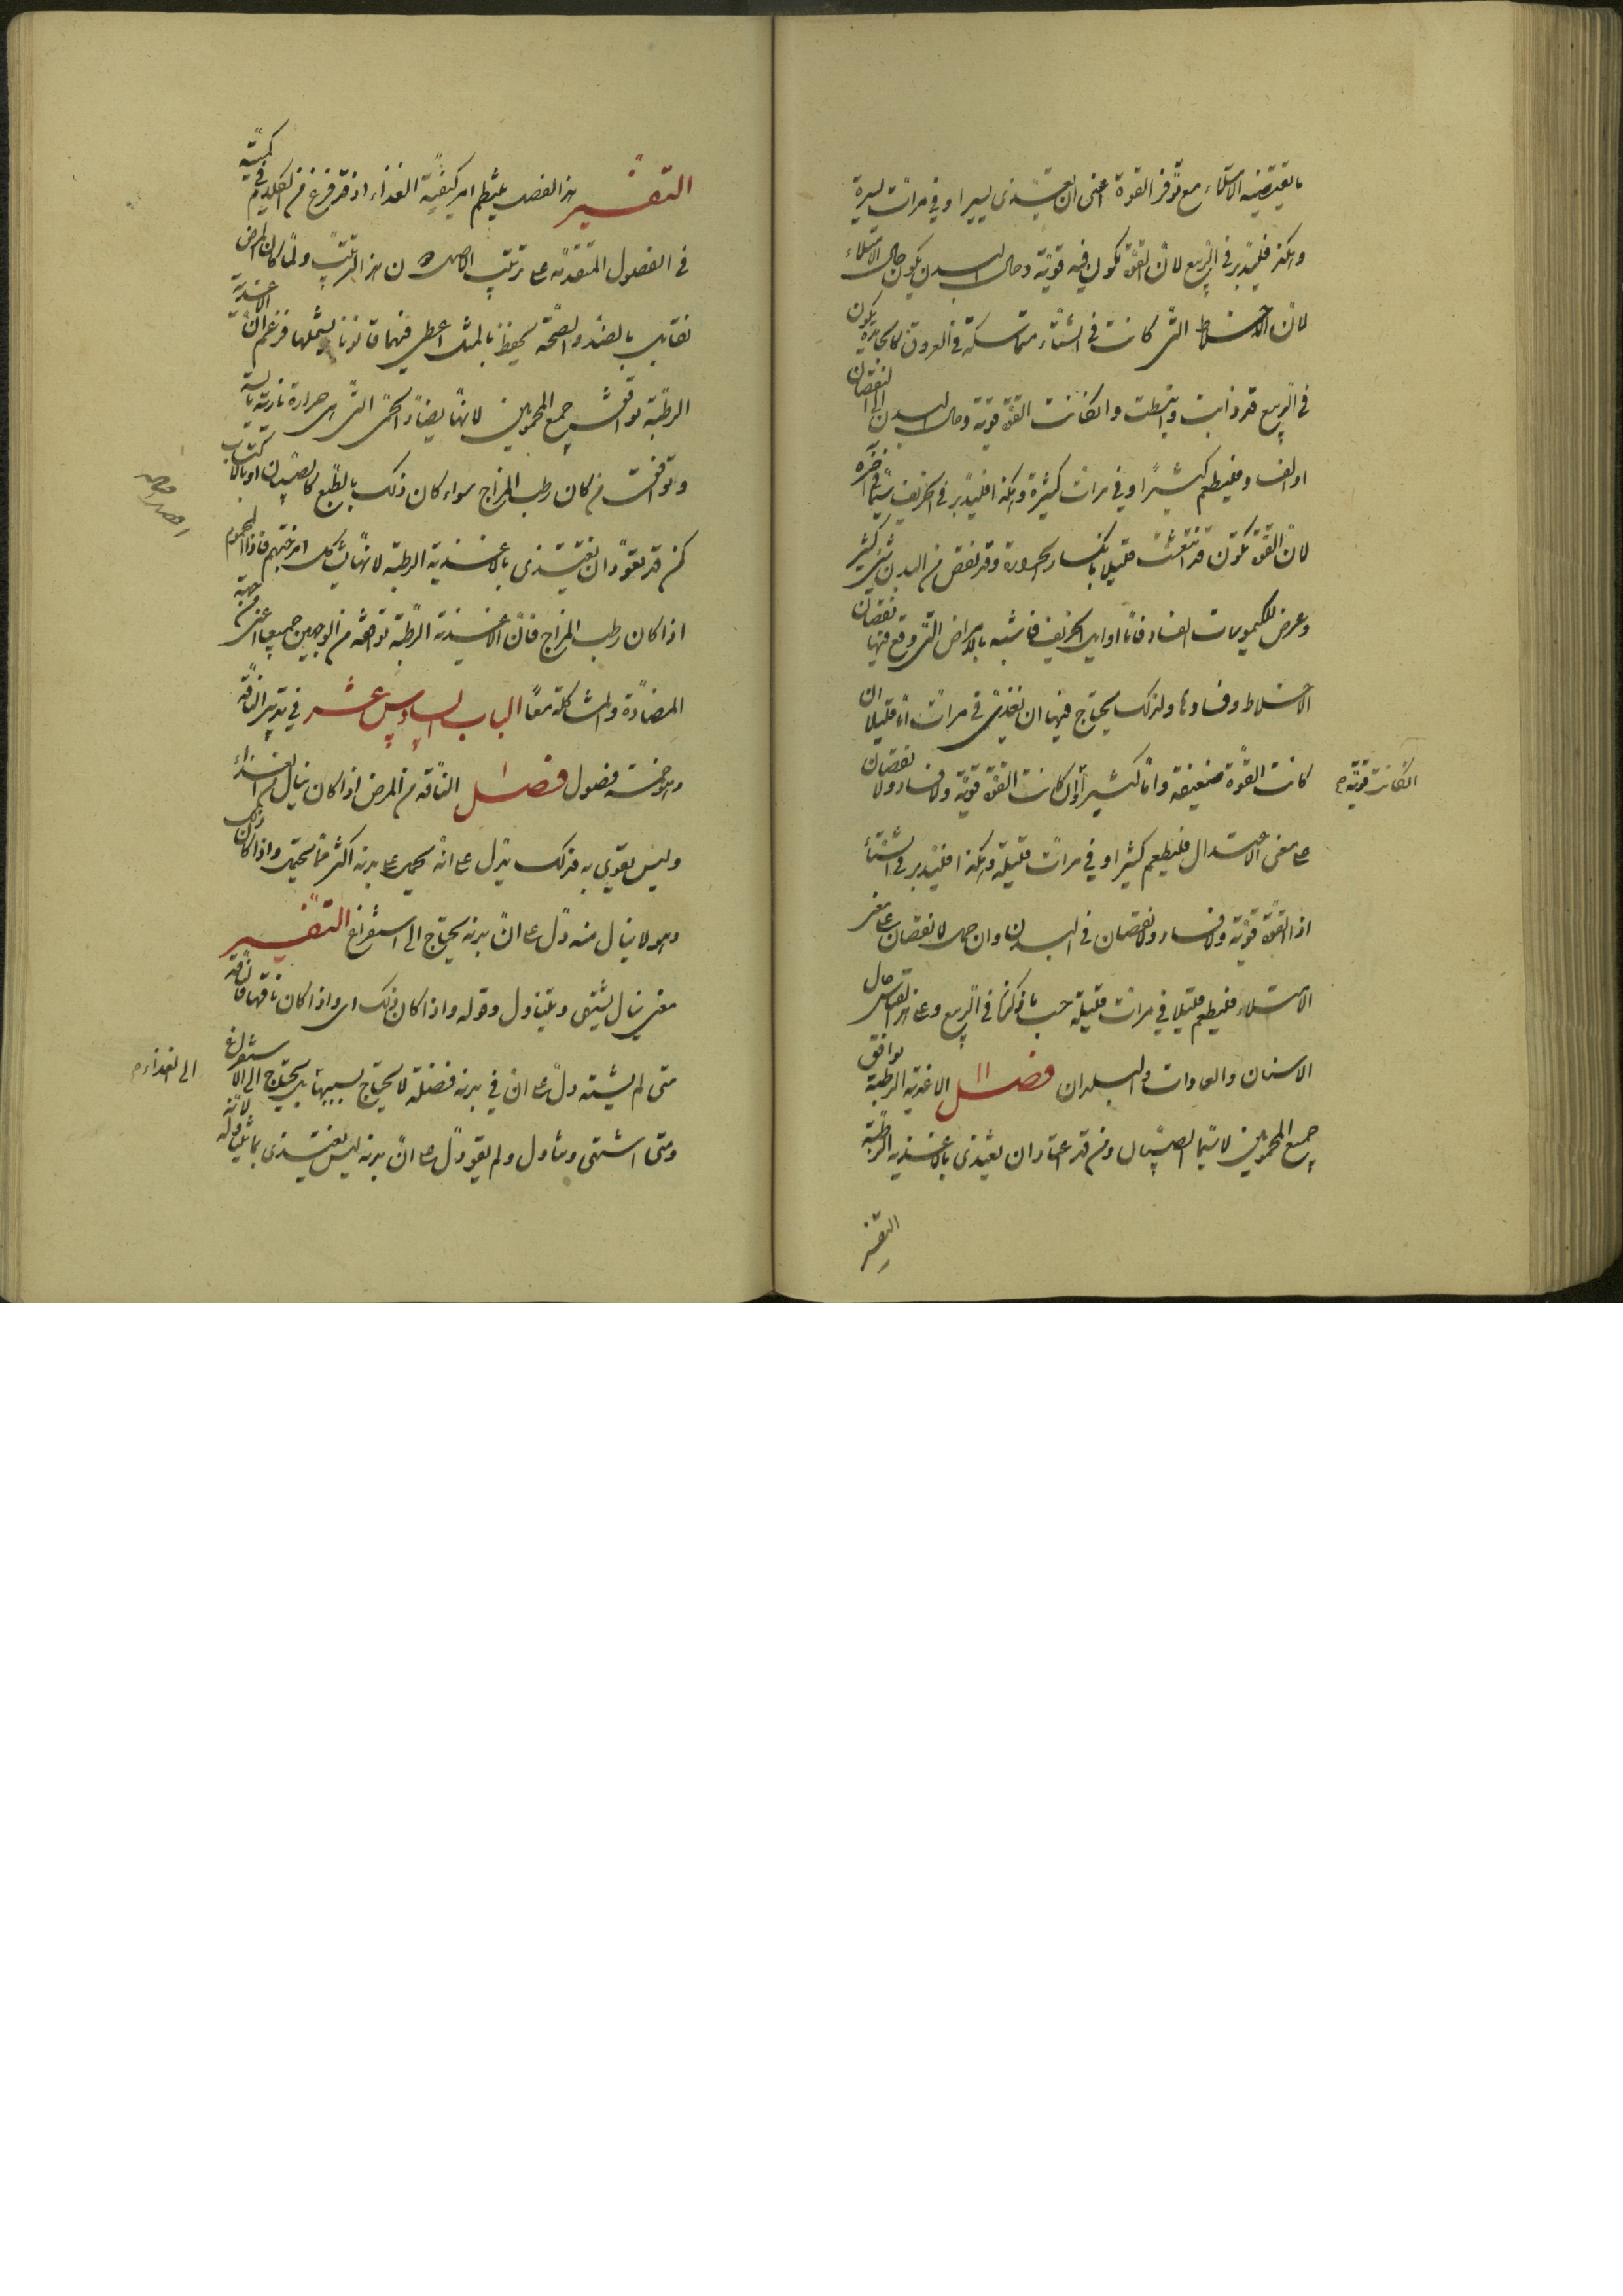 ما يقتضيه الامتلاء مع توفر القوة اعنى ان يغتذى يسيرا وفي مرات يسيرة
وهكذا فليدبر في الربيع لان القوة تكون فيه قوية وحال البدن يكون حال الامتلاء
لان الاخلاط التى كانت في الشتاء متماسكة في العروق كالجامدة يكون
في الربيع قد ذابت وانبسطت وان كانت القوة قوية وحال البدن الى النقصان
او الفساد فليطعم كثيرًا وفي مرات كثيرة وهكذا فليدبر في الخريف سيما في اخره
لان القوة تكون قد انتعشت قليلا بانكسار الحرورة وقد نقص من البدن شئ كثير
وعرض للكيموسات الفساد فاما اوايل الخريف فاشبه بالامراض التى وقع فيها نقصان
الاخلاط وفسادها ولذلك يحتاج فيها ان يغذى في مرات اما قليلا ان
كانت القوة ضعيفة واما كثيرا ان كانت القوة قوية ولا فساد ولا نقصان
ان كانت قوية
على معنى الاعتدال فليطعم كثيرا وفي مرات قليلة وهكذا فليدبر في الشتاء
اذ القوة قوية ولا فساد ولا نقصان في البدن وان حصل لا نقصان على معنى
الامتلاء فليطعم قليلا في مرات قليلة حسب ما ذكرنا في الربيع وعلى هذا القياس حال
الاسنان والعادات والبلدان فصل ١١ الاغذية الرطبة توافق
جميع المحمومين لا سيما الصبيان ومن قد اعتاد ان يغتذى بالاغذية الرطبة
التفسير
التفسير هذا الفصل ينتظم امر كيفية الغذاء اذ قد فرغ من الكلام في كميته
في الفصول المتقدمة على ترتيب الاصل لان هذا الترتيب ولما كان المرض
يقابل بالضد والصحة تحفظ بالمثل اعطى فيهما قانونا يشملها فزعم ان الاغذية
الرطبة توافق جميع المحمومين لانها يضاد الحمى التى هى حرارة نارية يابسة
وتوافق من كان رطب المزاج سواء كان ذلك بالطبع كالصبيان او بالاكتساب
كمن قد تعود ان يغتذى بالاغذية الرطبة لانها يشاكل امزجتهم فاذا المحموم
اذا كان رطب المزاج فان الاغذية الرطبة توافقه من الوجهين جميعا اعنى من جهة
المضادة والمشاكلة معًا الباب السادس عشر في تدبير الناقه
وهو خمسة فصول فصل ١ الناقه من المرض اذا كان ينال من الغذاء
وليس يقوى به فذلك يدل على انه يحمل على بدنه اكثر مما يحتمل واذا كان ذلك
وهو لا ينال منه دل على ان بدنه يحتاج الى استفراغ التفسير
معنى ينال يشتهى ويتناول وقوله واذا كان ذلك اى واذا كان ناقها فالناقه
متى لم يشته دل على ان في بدنه فضلة لا يحتاج بسببها بل يحتاج الى الاستفراغ
الى الغذاء
ومتى اشتهى وتناول ولم يقو دل على ان بدنه ليس يغتذى بما يتناوله لانه